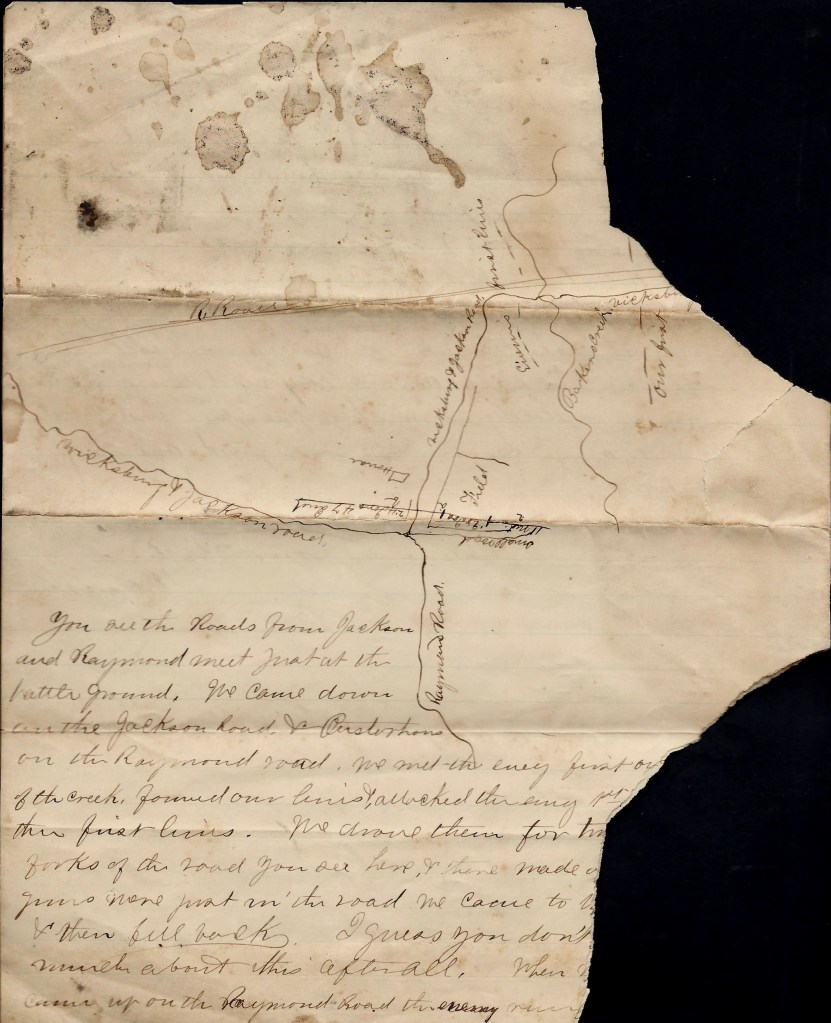 first lines
R. Road
Vicksb
Vicksburg & Jackson Road
Enemis
Bakers Creek
our first
House
Field
Vicksburg & Jackson road
Raymond Road.
You see the Roads from Jackson
and Raymond meet just at the
battle ground. We came down
on the Jackson Road. & Osterhaus
on the Raymond road. We met the enmy first
of the creek. formed our lines & attacked the enmy
their first lines. We drove them for
forks of the road you see here, & there made
guns were just in the road we came to
& then fell back. I guess you don't
much about this after all. When
came up on the Raymond Road the enemy